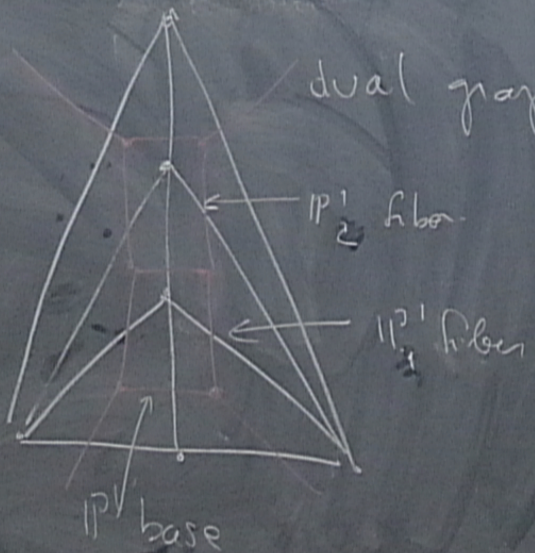 dual
ℙ¹₂ fiber
ℙ¹₁ fiber
ℙ¹ base